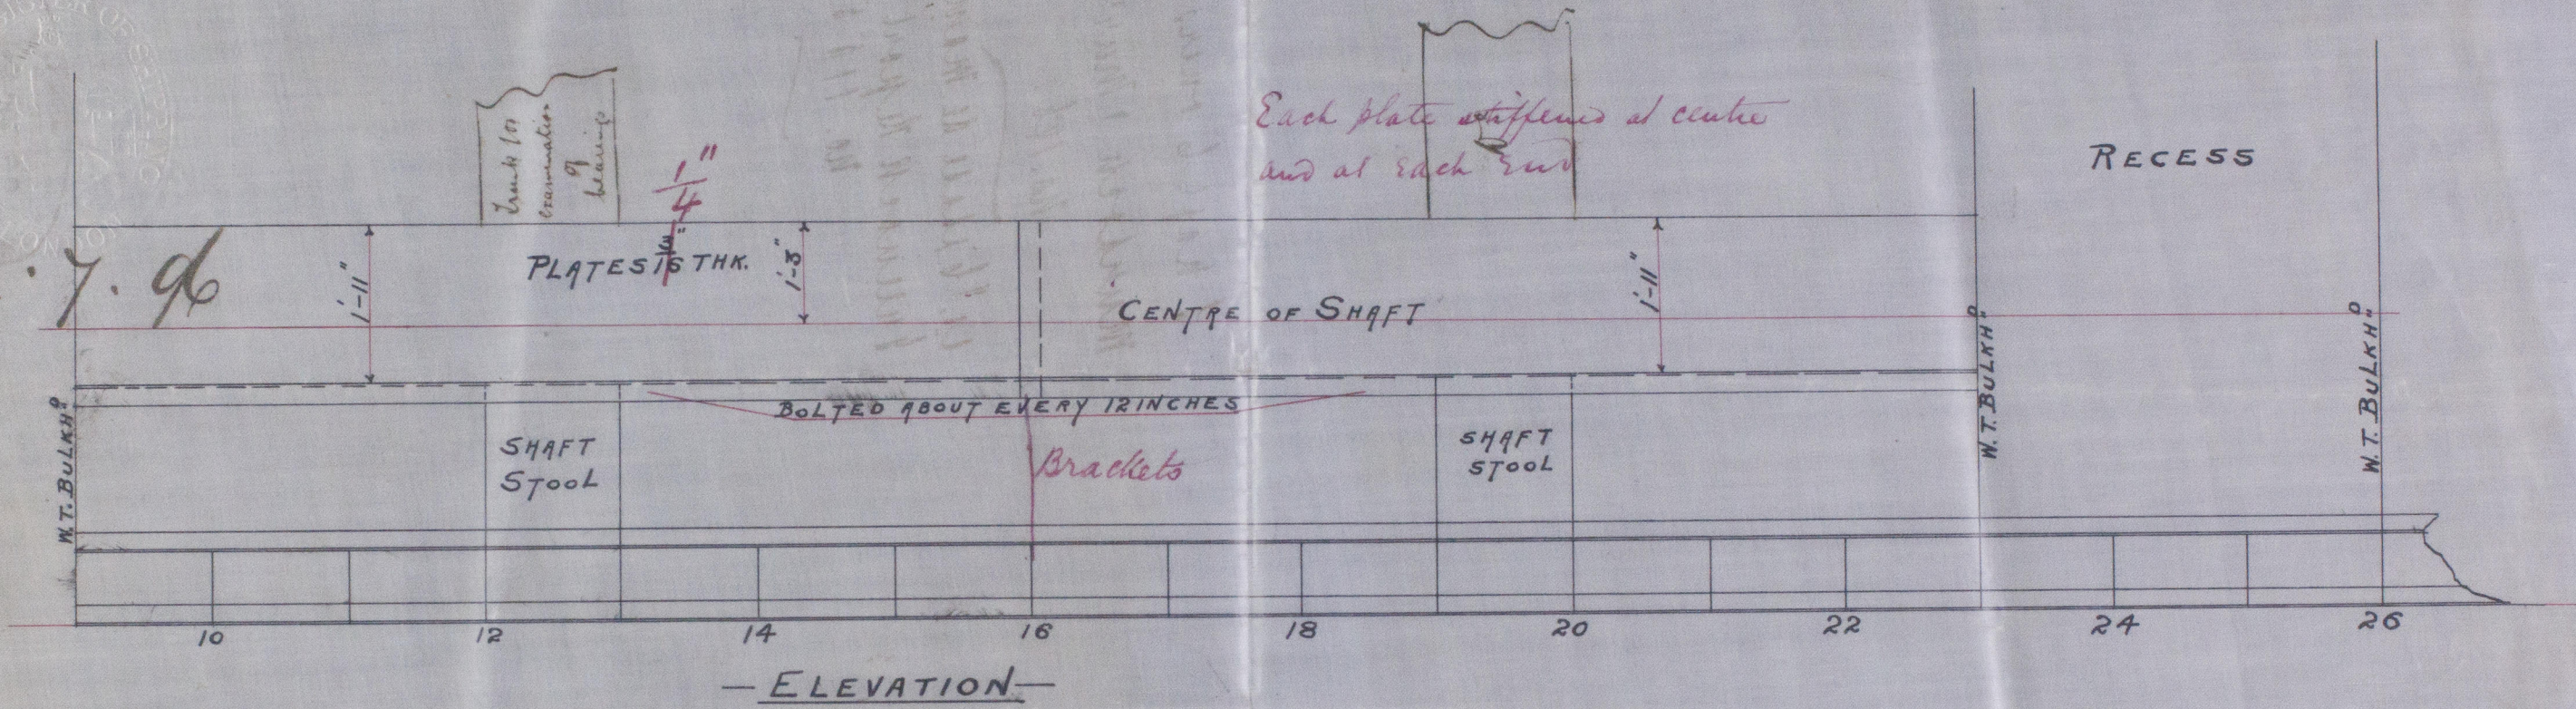 Trunk for
examination
of
bearings
1/4"
Each plate stiffened at centre
and at each End
RECESS
7. 96
1'-11"
PLATES 3/16" THK.
1'-3"
CENTRE OF SHAFT
1'-11"
W.T. BULKHD
W.T. BULKHD
W.T. BULKHD
BOLTED ABOUT EVERY 12 INCHES
SHAFT
STOOL
Brackets
SHAFT
STOOL
10 12 14 16 18 20 22 24 26
— ELEVATION —
LONDON